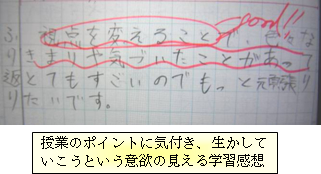 good!!
ふり返り
視点を変えることで、
きまりや気づいたことがあって
とてもすごいのでもっと頑張り
たいです。
授業のポイントに気付き、生かして
いこうという意欲の見える学習感想